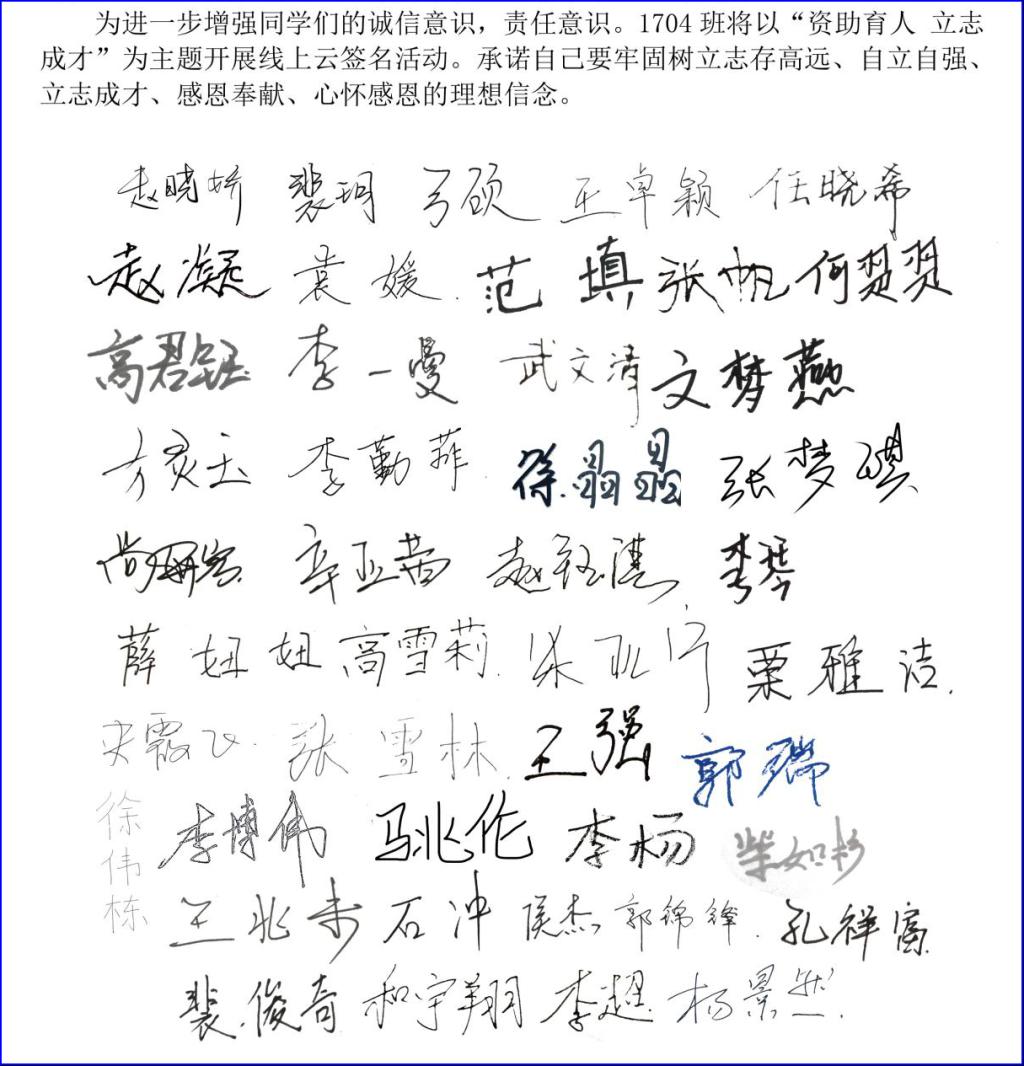 为进一步增强同学们的诚信意识，责任意识。1704 班将以“资助育人 立志
成才”为主题开展线上云签名活动。承诺自己要牢固树立志存高远、自立自强、
立志成才、感恩奉献、心怀感恩的理想信念。
赵晓娇 裴玥 弓颀 王卓颖 任晓希
赵凝 袁媛 范填 张帆 何翠翠
高君钰 李一曼 武文清 文梦燕
李勤菲 徐晶晶 张梦琪
尚妍宏 辛亚茜 赵钰湛 李琴
薛妞妞 高雪莉 栗雅洁
史霞飞 张雪林 王强 郭瑞
徐伟栋 李博伟 马兆伦 李杨 柴如杉
王兆 石冲 侯杰 郭锦锋 孔祥富
裴俊奇 和宇翔 李超 杨景然